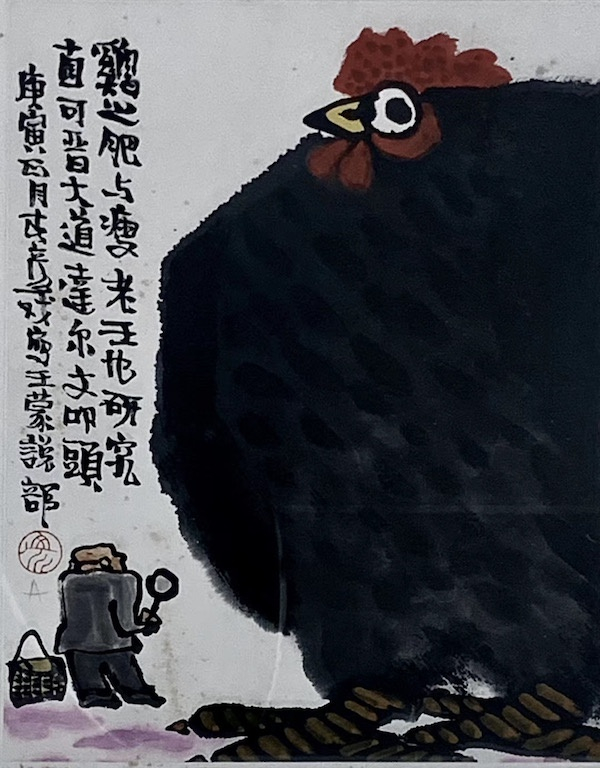 鷄之肥与瘦老王也研究
直可晋大道達尔文叩頭
庚寅四月其亮戏寫王蒙説部